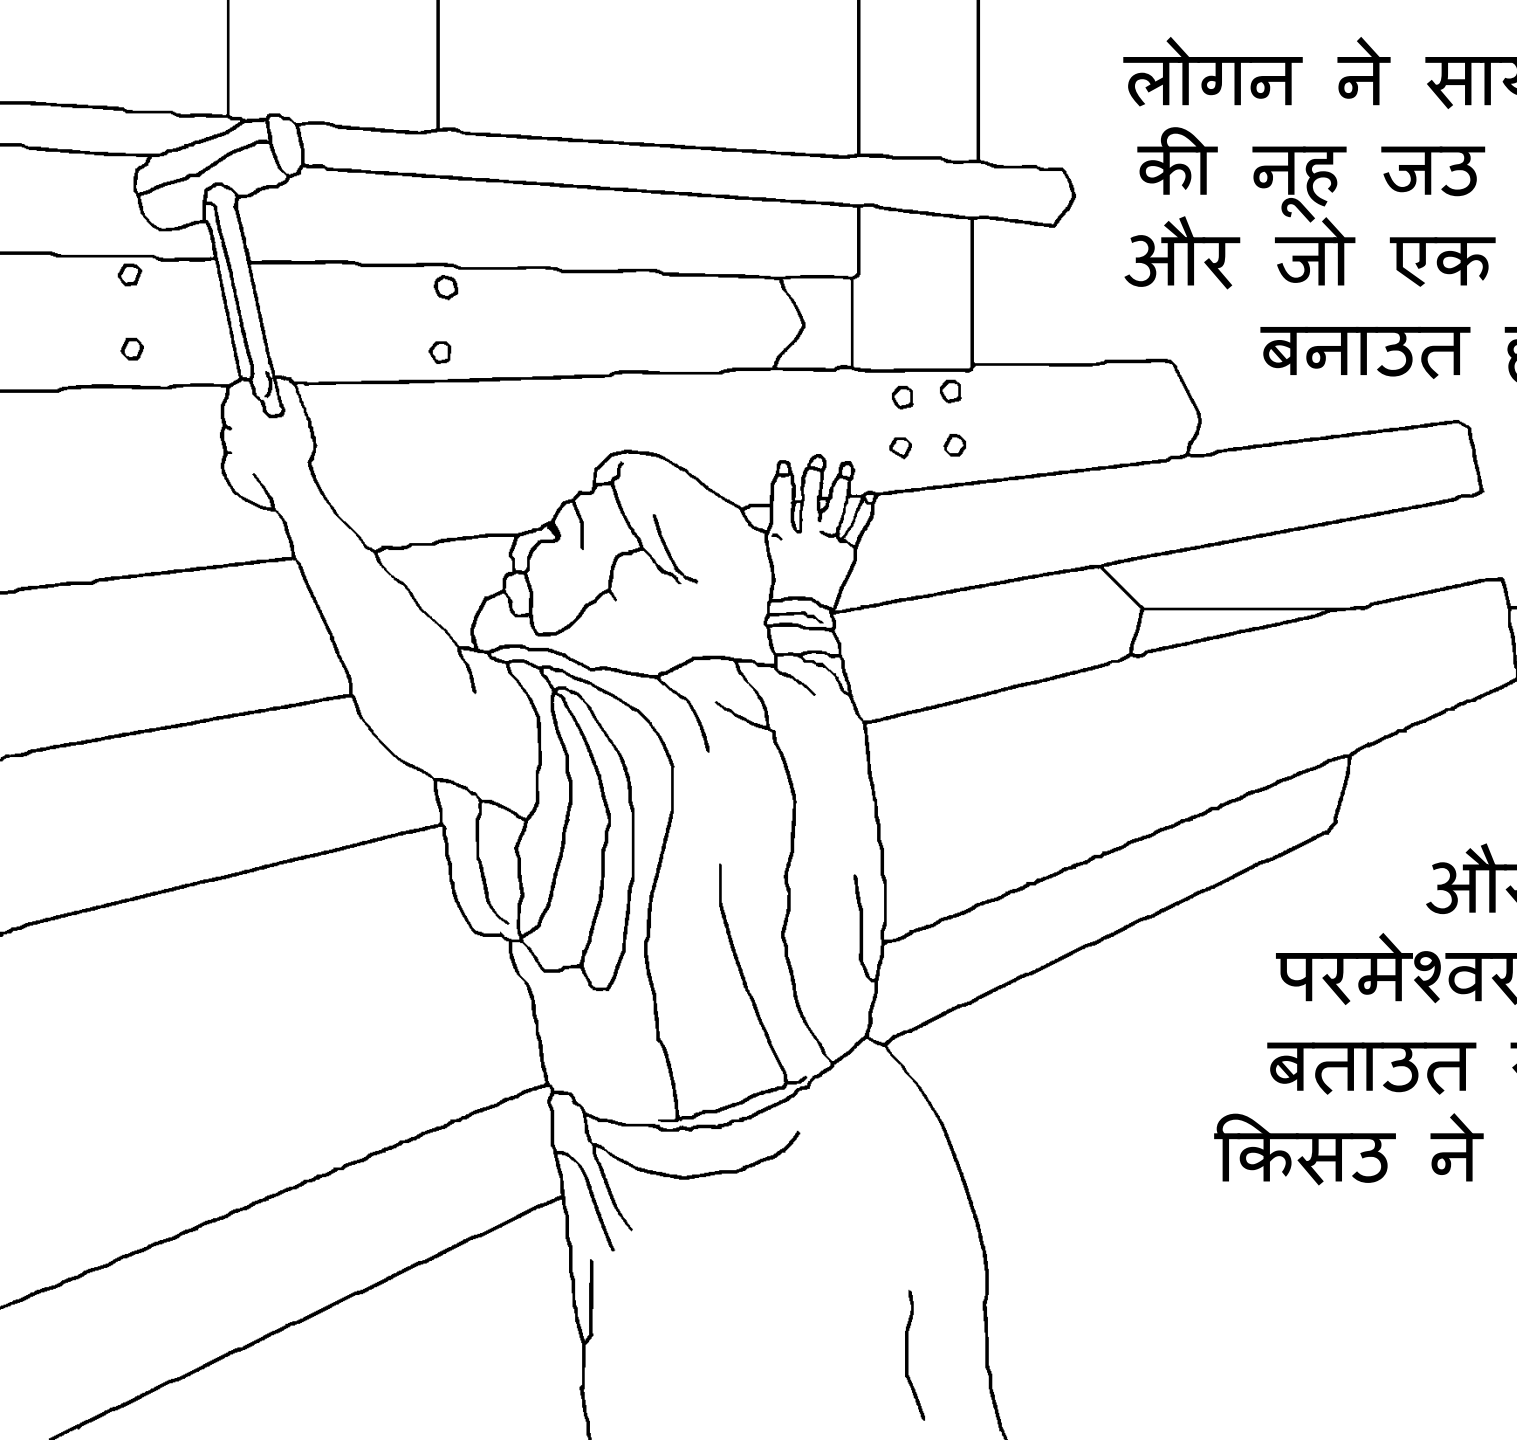 लोगन ने
की नूह जउ
और जो एक
बनाउत
परमेश्वर
बताउत
किसउ ने